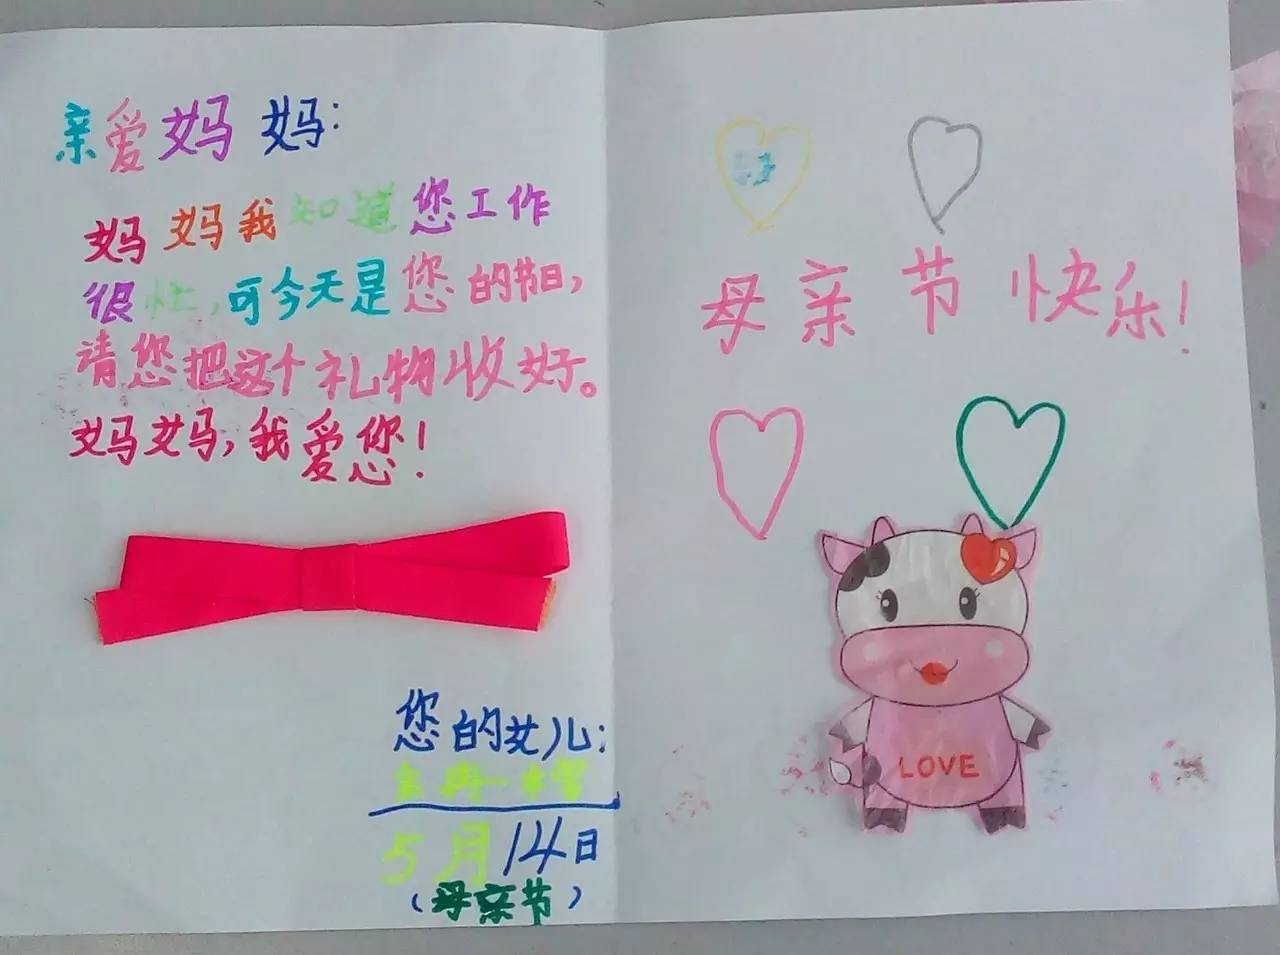 亲爱妈妈：
妈妈我知道您工作
很忙，可今天是您的节日，
请您把这个礼物收好。
妈妈，我爱您！
您的女儿：
5月14日
（母亲节）
母亲节快乐！
LOVE